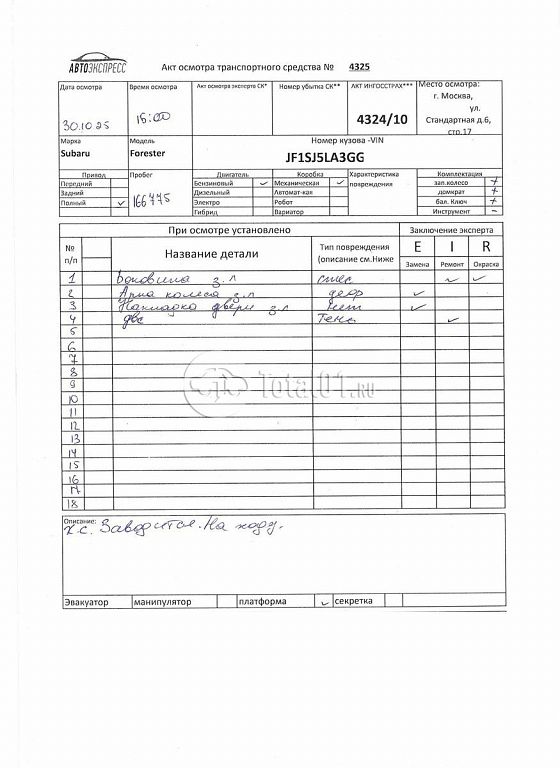 АВТОЭКСПРЕСС
Акт осмотра транспортного средства № 4325
Дата осмотра
Время осмотра
Акт осмотра эксперта СК*
Номер убытка СК**
АКТ ИНГОССТРАХ***
Место осмотра:
30.10.25
15:00
4324/10
г. Москва,
ул.
Стандартная д.6,
стр.17
Марка
Модель
Номер кузова -VIN
Subaru
Forester
JF1SJ5LA3GG
Привод
Пробег
Двигатель
Коробка
Характеристика
повреждения
Комплектация
Передний
166775
Бензиновый ✓
Механическая ✓
зап.колесо +
Задний
Дизельный
Автомат-кая
домкрат +
Полный ✓
Электро
Робот
бал. Ключ +
Гибрид
Вариатор
Инструмент –
При осмотре установлено
Заключение эксперта
№
п/п
Название детали
Тип повреждения
(описание см.Ниже
E I R
Замена Ремонт Окраска
1 Боковина з.л ✓ ✓
2 Арка колеса з.л деф ✓
3 Накладка двери з.л нет ✓
4 двс ✓
5
6
7
8
9
10
11
12
13
14
15
16
17
18
Total01.RU
Описание:
Заводится. На ходу.
Эвакуатор
манипулятор
платформа ✓
секретка